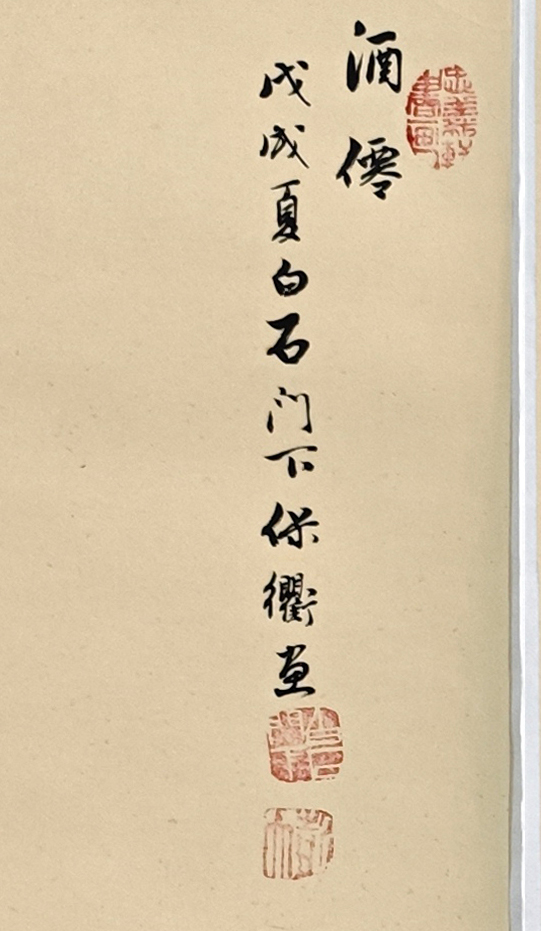 酒僊
戊戌夏白石門下保衢畫